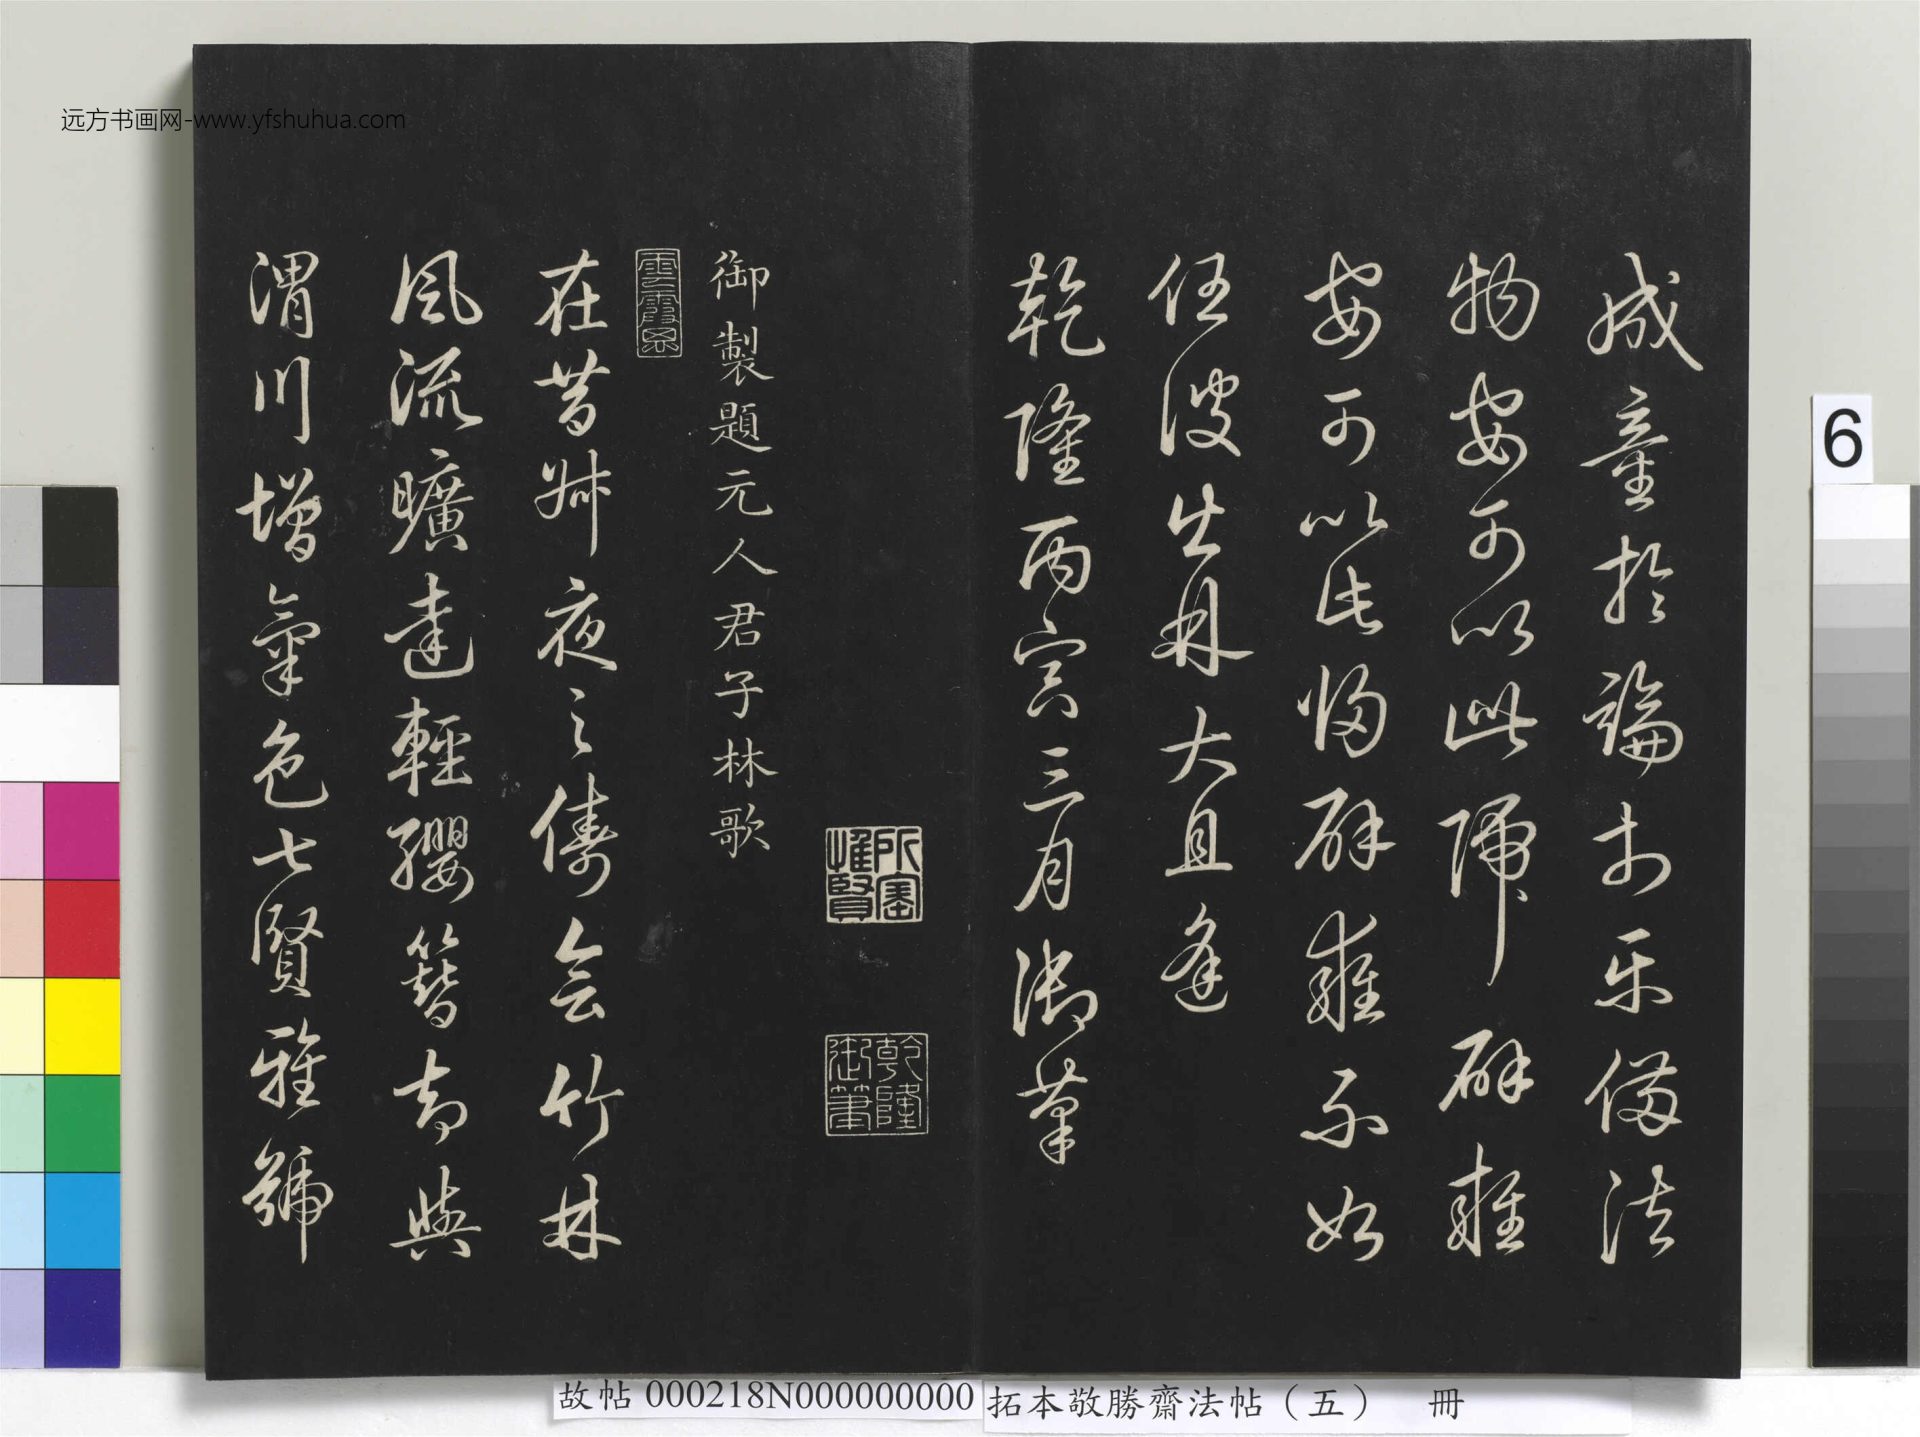 成童於論於樂備法
物安可以此歸辟雍
安可以此歸辟雍不如
任彼生林大且逢
乾隆丙寅三月御筆
所寶惟賢
乾隆御筆
御製題元人君子林歌
雲霞思
在昔叔夜之儔會竹林
風流曠達輕纓簪高與
渭川增氣色七賢雅號
远方书画网-www.yfshuhua.com
6
故帖 000218N000000000 拓本敬勝齋法帖（五） 冊